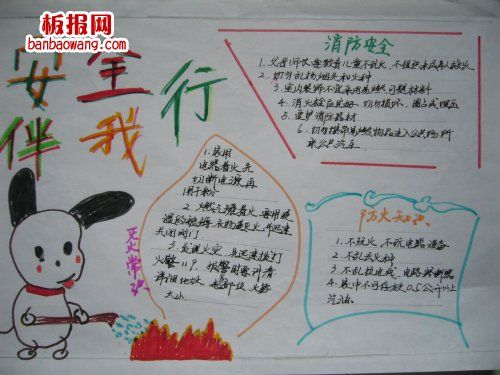 板报网
banbaowang.com
安全
伴我
行
消防安全
1. 父母、师长要教育儿童不玩火、不组织未成年人救火
2. 切勿乱扔烟头和火种
3. 室内装饰不宜采用易燃、可燃材料
4. 消火栓应见好、切勿损坏、圈占或埋压
5. 爱护消防器材
6. 切勿携带易燃物品进入公共场所
乘公共汽车
1. 家用
电器着火、先
切断电源、再
用
2. 燃气罐着火、要用浸
湿的被褥、衣物
关闭阀门
3. 发现火灾、先迅速拨打
火警119。报警时要讲清
详细地址、起部位、火势
大小
灭火常识
防火知识
1. 不玩火、不玩电器设备
2. 不乱丢火种
3. 不乱拉电线、电路
4. 家中不可存放0.5公斤以上
汽油